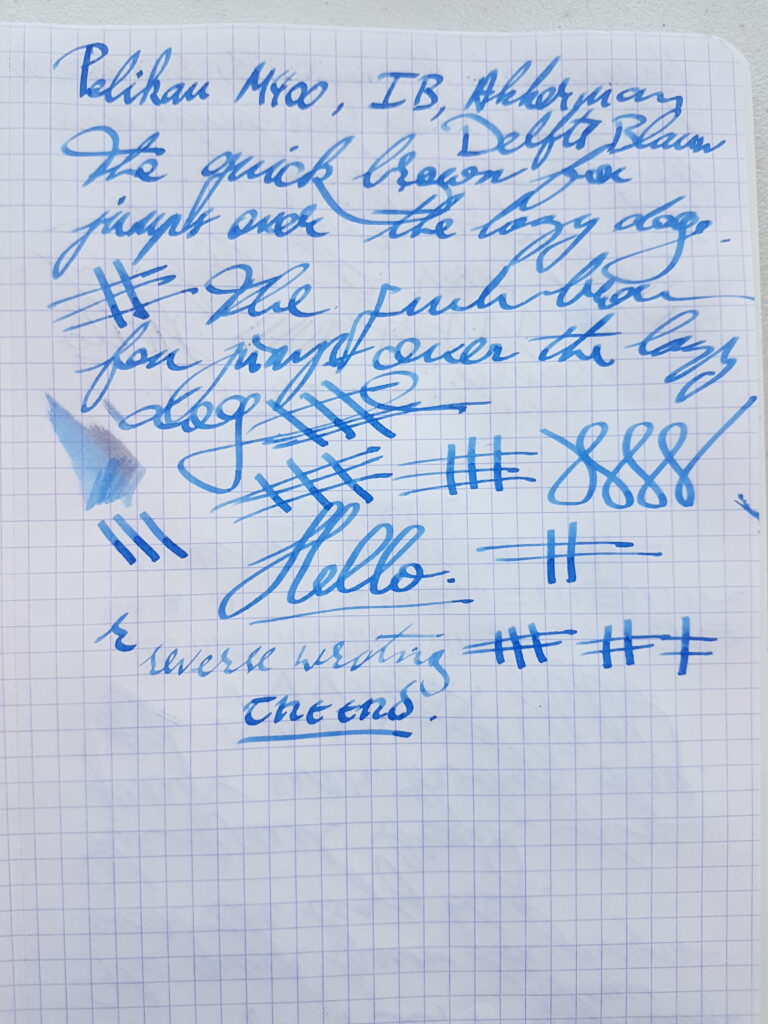 Pelikan M400, IB, Akkerman
Delfts Blauw
The quick brown fox
jumps over the lazy dogs.
The quick brow
fox jumps over the lazy
dog
Hello.
r
reverse wroting
THE END.